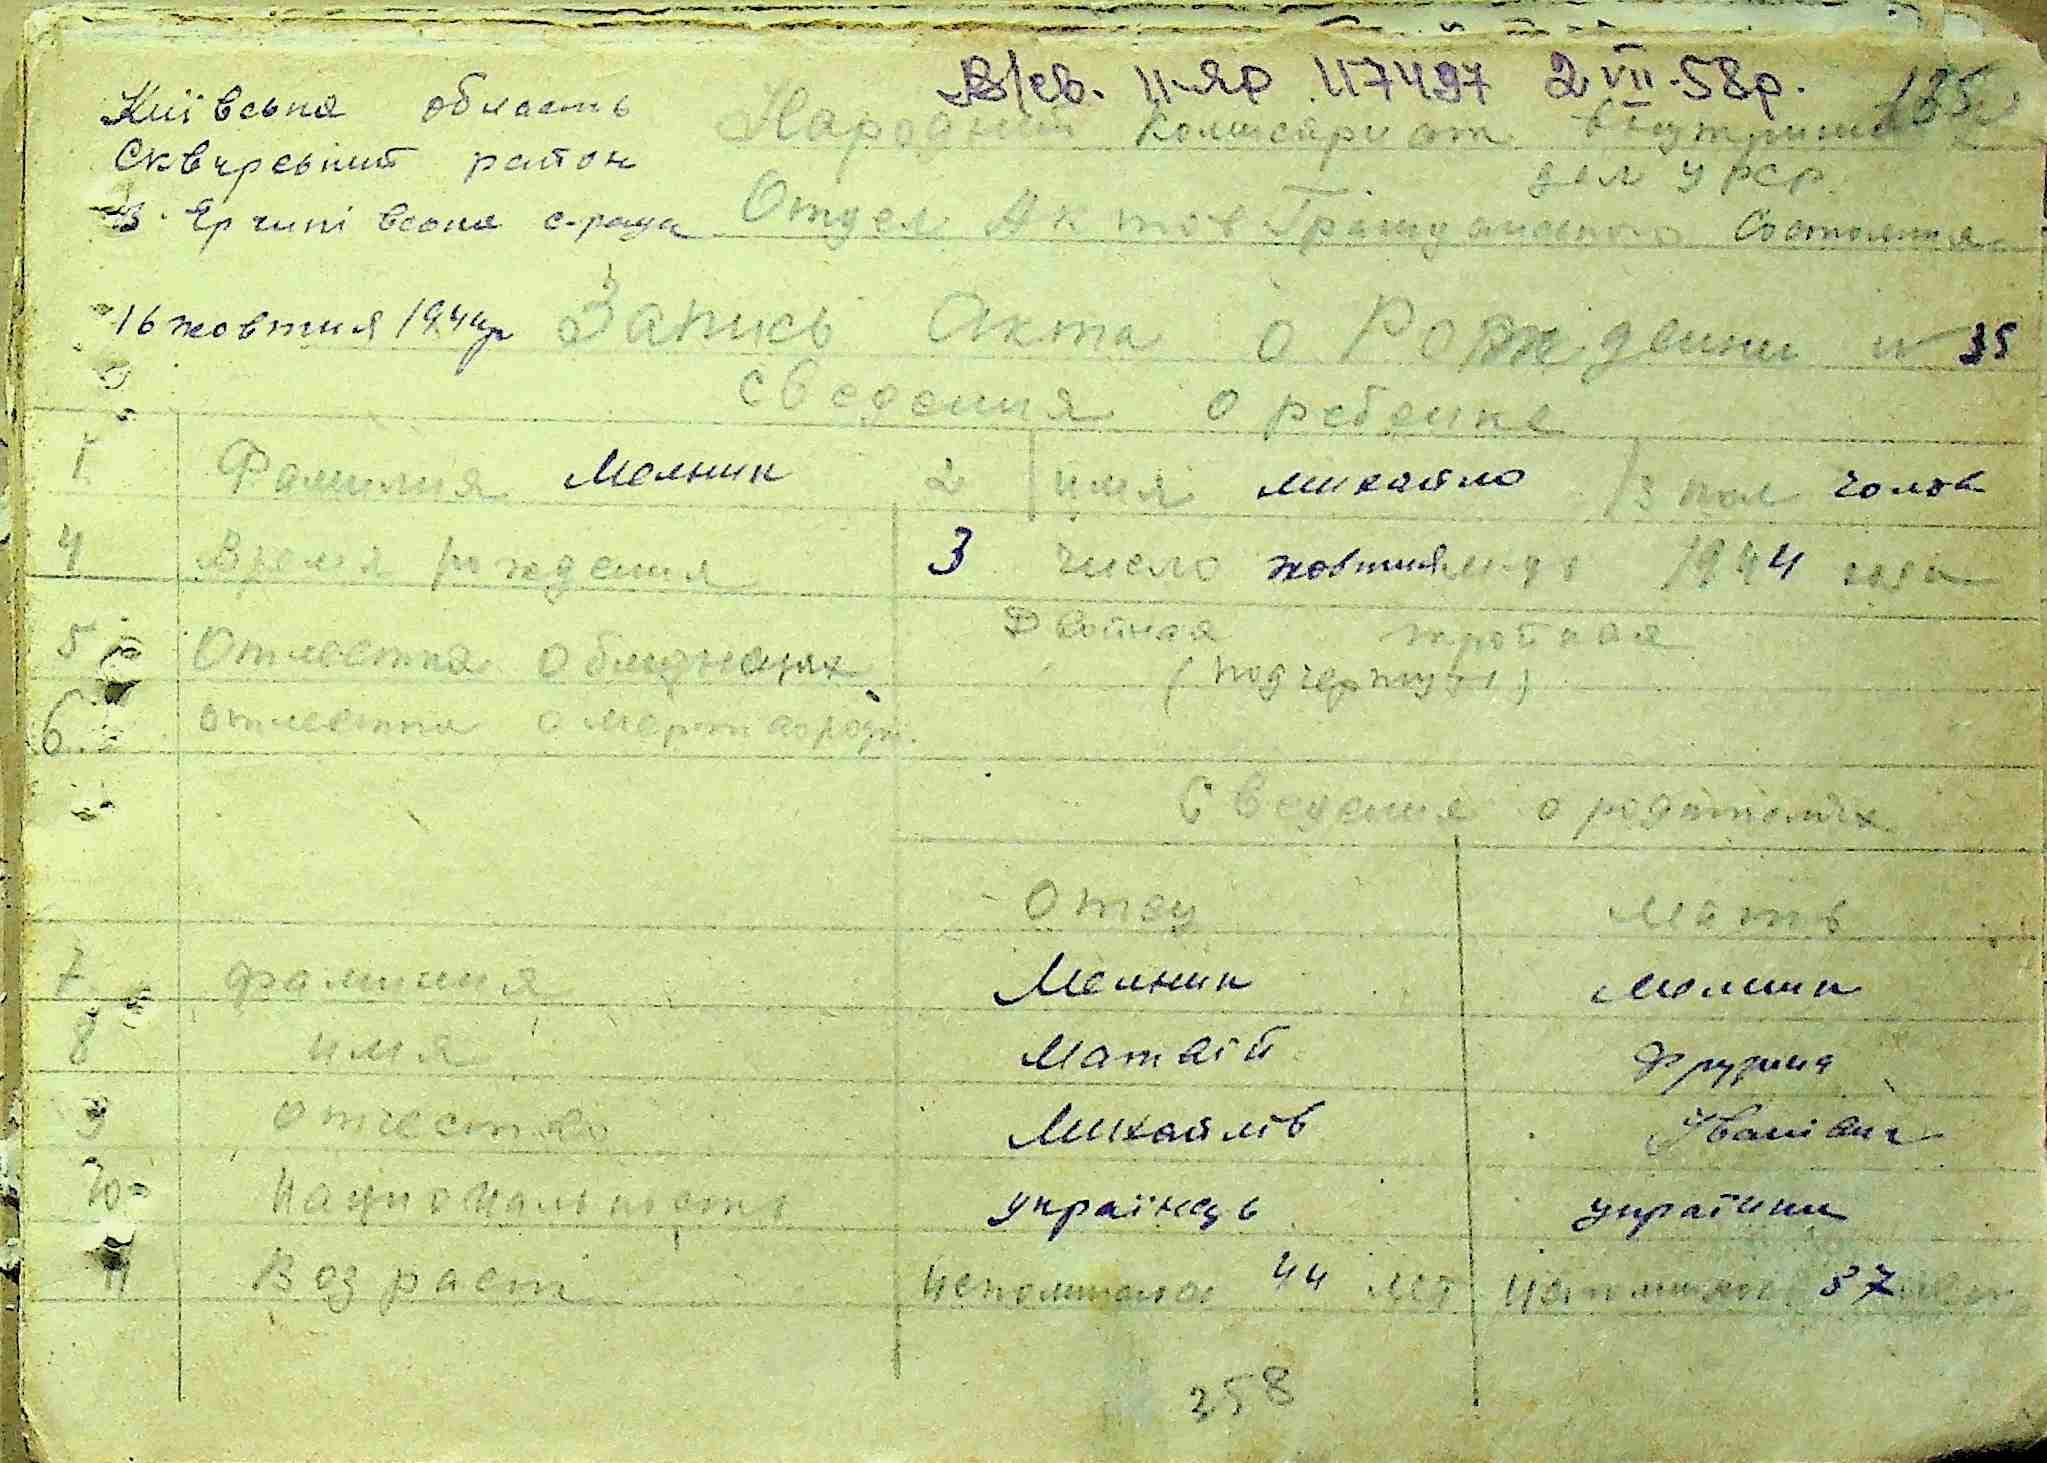 В/св. II-ЯР 117497 2 VII.58р.
Київська область Народний Комисариат внутрішн
Сквирський район дел УРСР.
Ярчиківська с-рада Отдел Актов Гражданского Состояния
16 жовтня 1944р Запись Акта о Рождении № 35
Сведения о ребенке
1 Фамилия Мелник 2 имя Михайло 3 пол чолов
4 Время рождения 3 число жовтня м-ця 1944 года
5 Отметка о близнецах Двойная тройная
(подчеркнуть)
6 отметка о мертворожд.
Сведения о родителях
Отец Мать
7 фамилия Мелник Мелник
8 имя Матвій
9 отчество Михайлів Іванівна
10 Национальность українець українка
11 Возраст исполнилось 44 лет исполнилось 37 лет
258